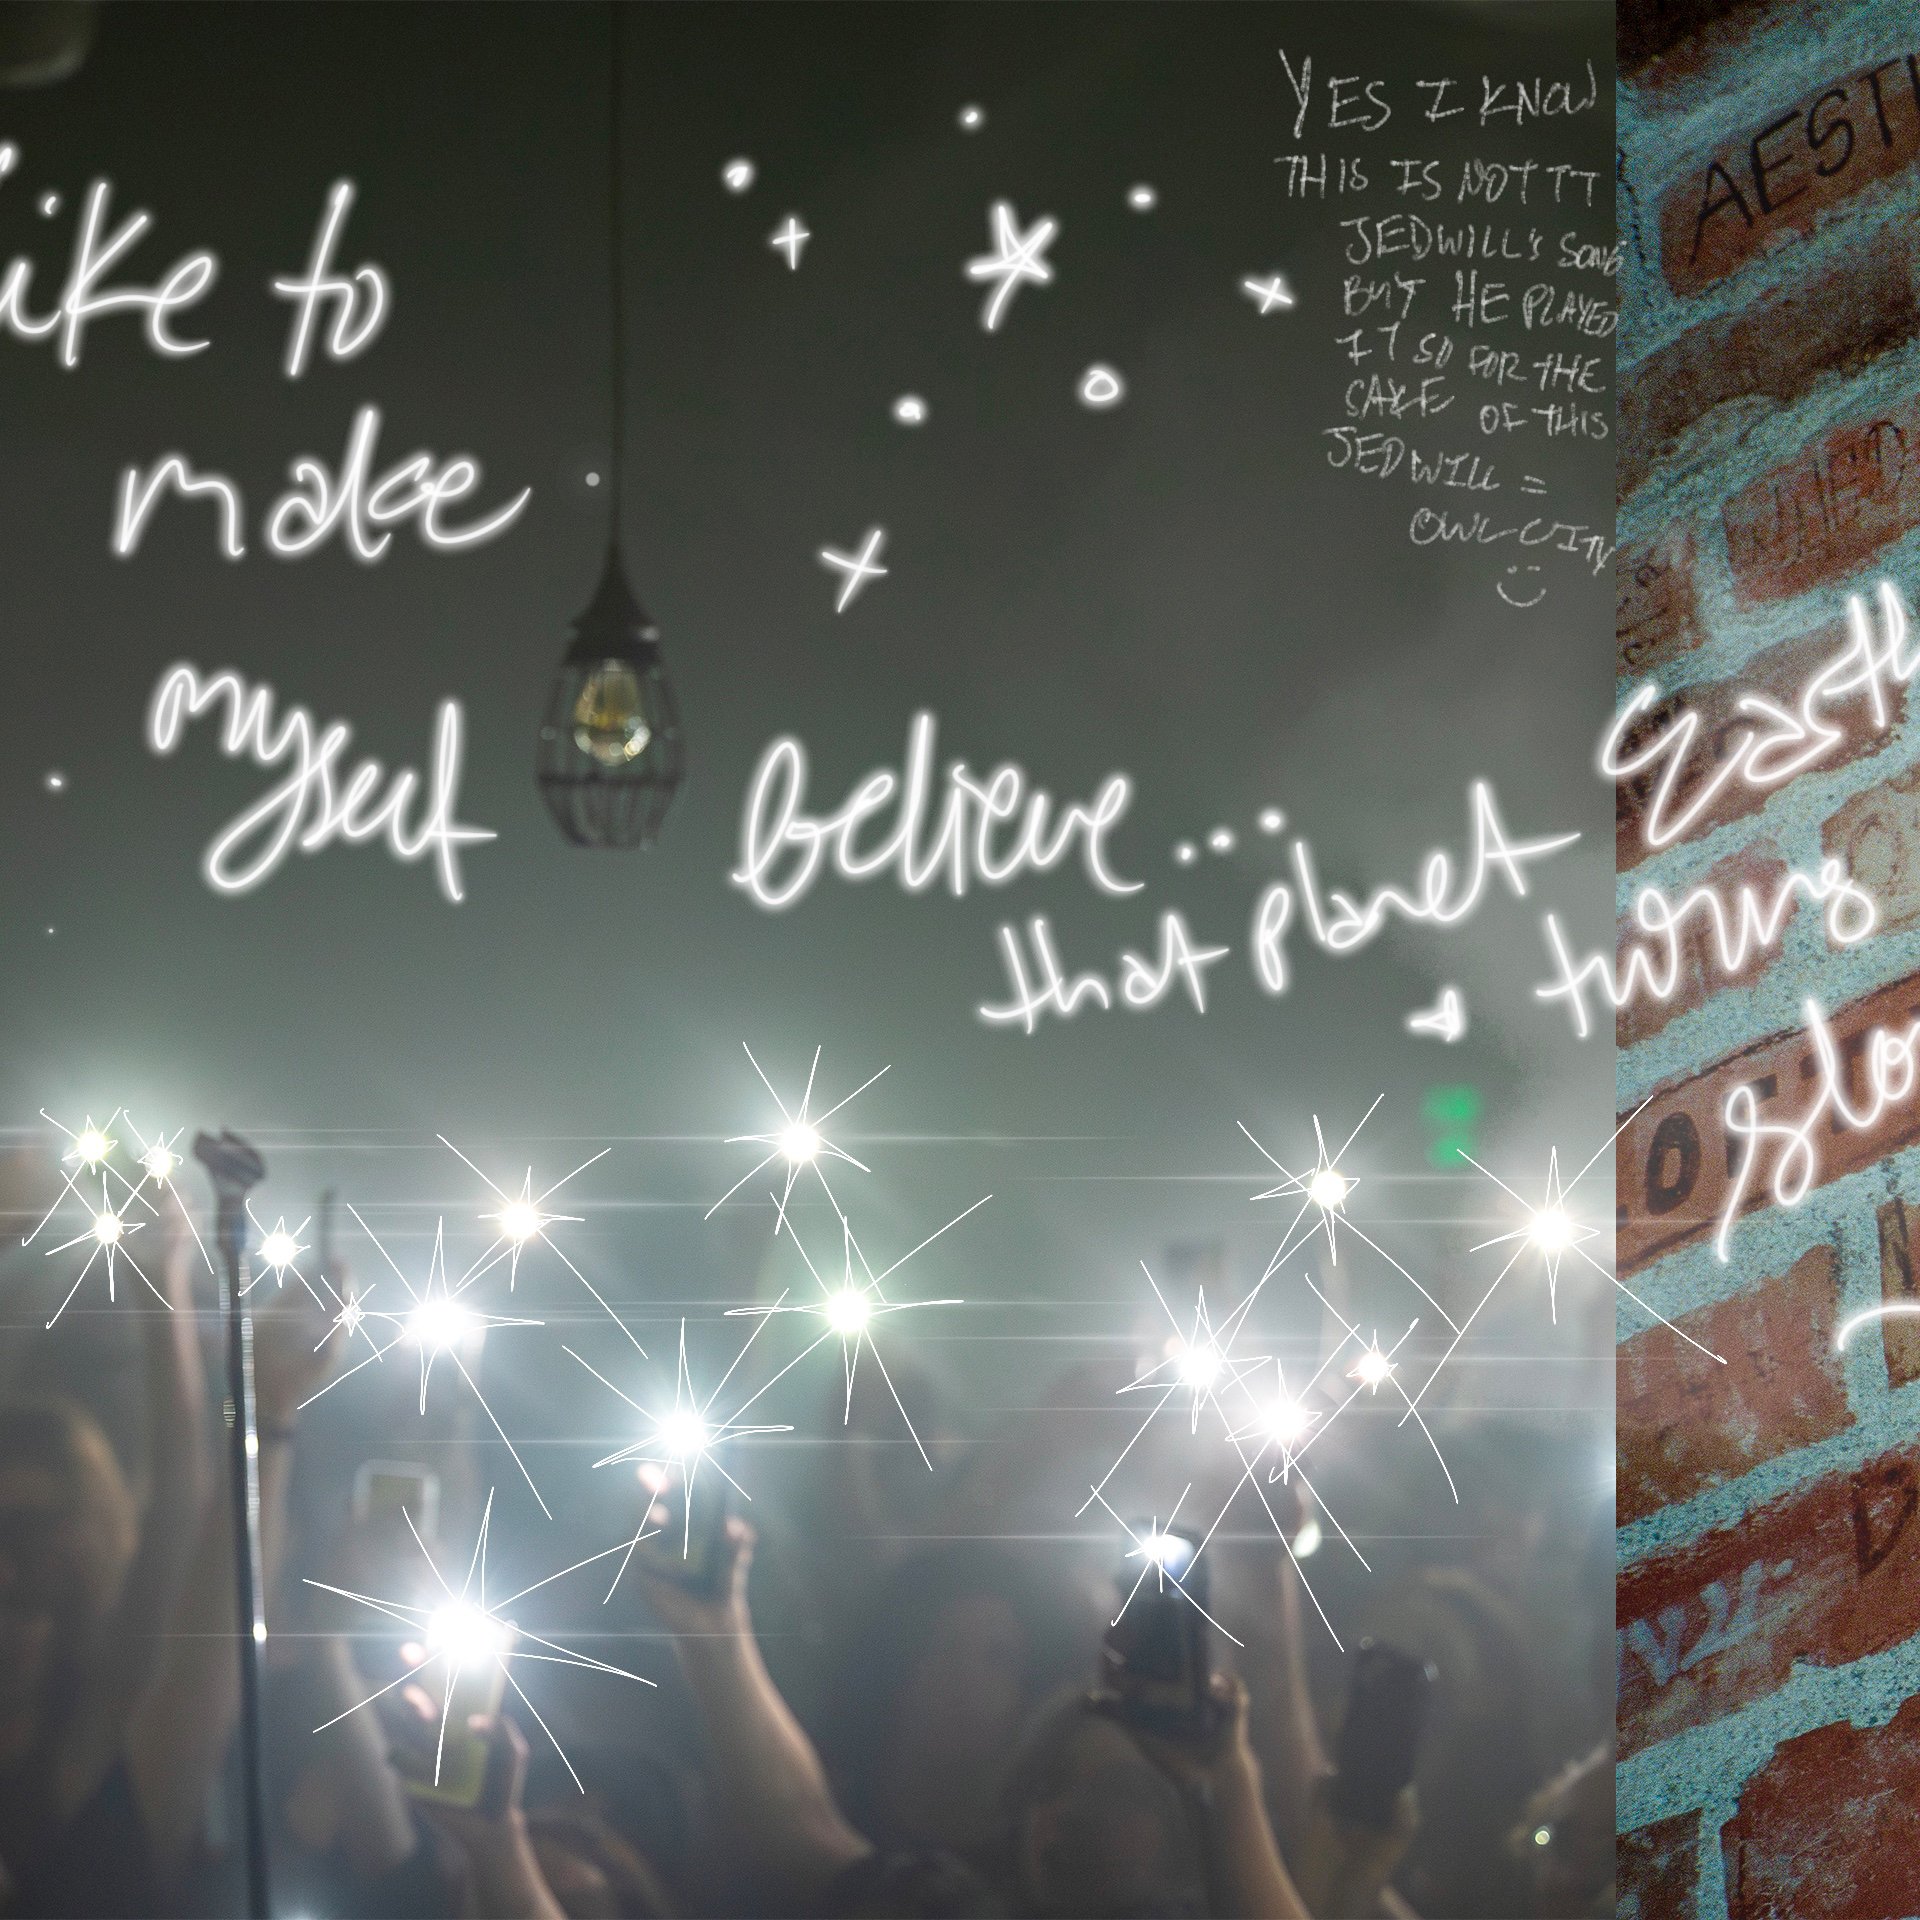 like to
make
myself
believe...
that planet Earth
turns
slo
YES I KNOW
THIS IS NOT TT
JEDWILL'S SONG
BUT HE PLAYED
IT SO FOR THE
SAKE OF THIS
JEDWILL =
OWL CITY
AESTH